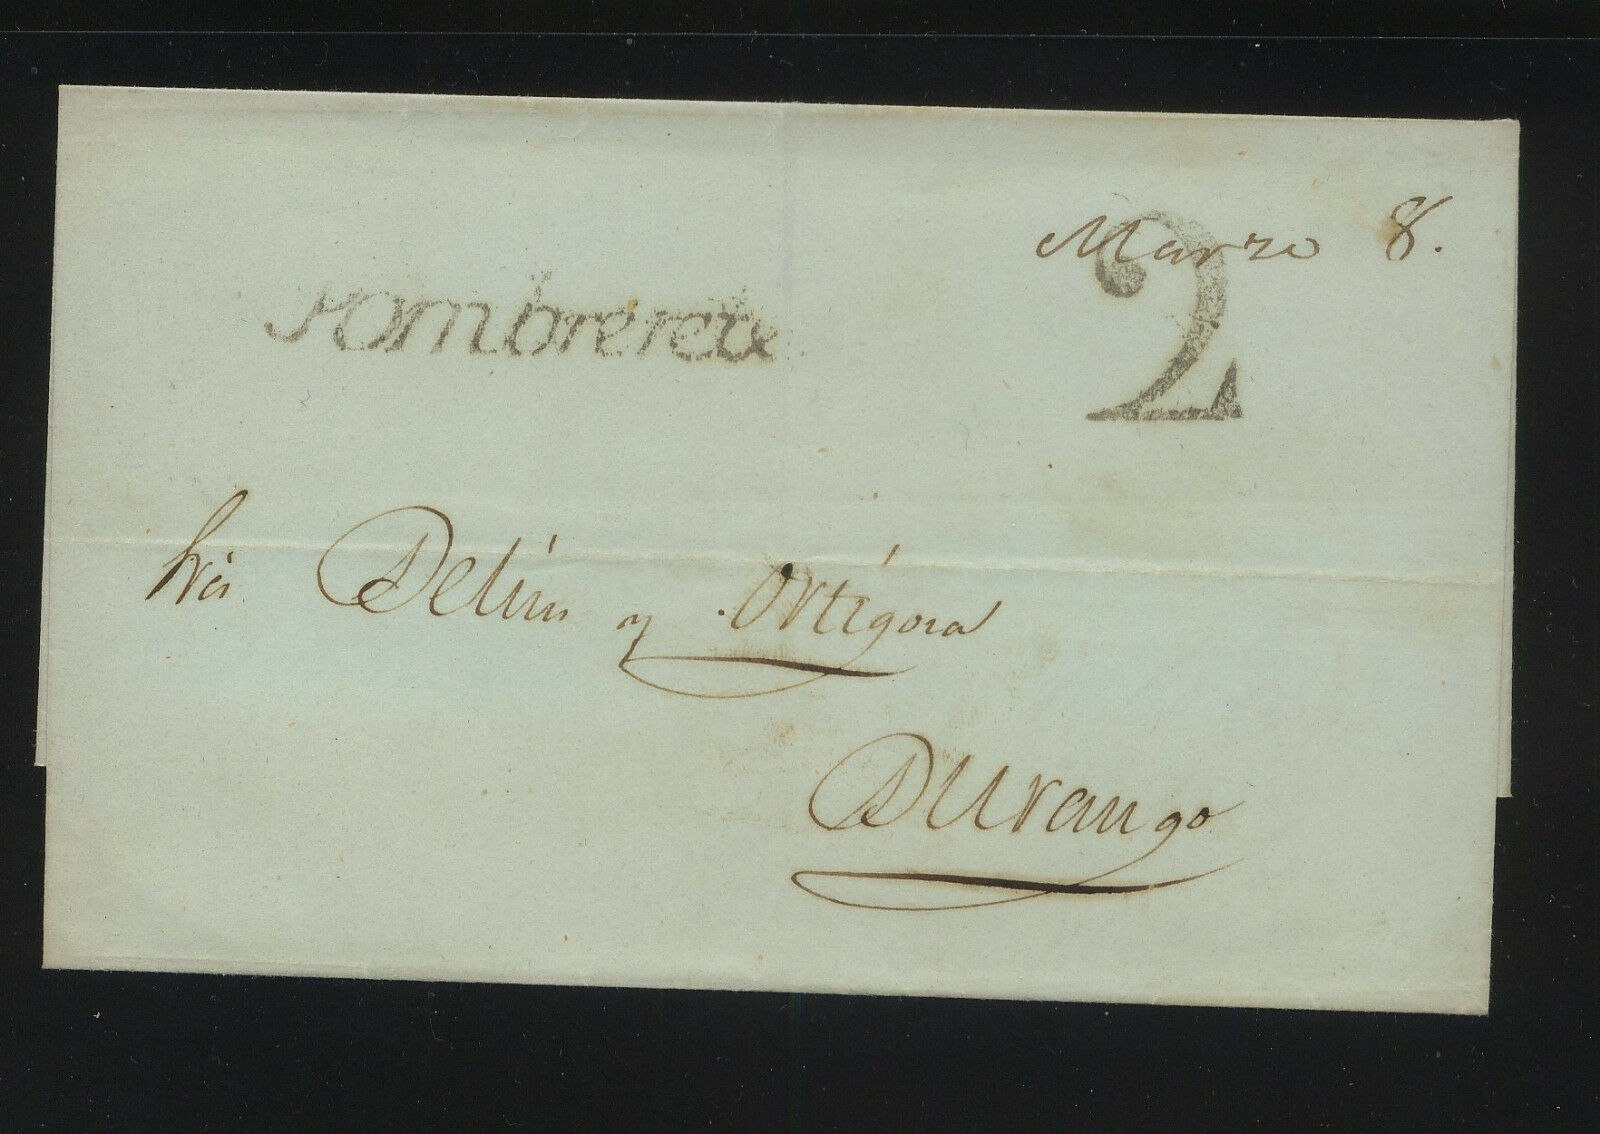 Marzo 8.
Sombrerete
2
Sres. Delius y Ortigosa
Durango